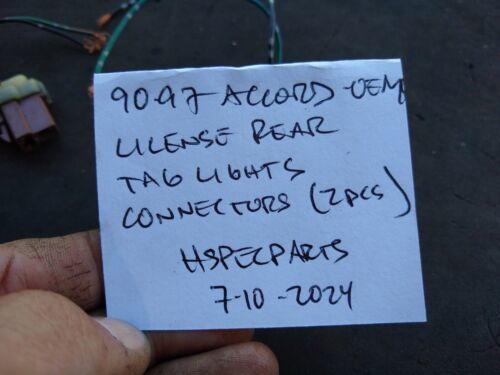 90-97 ACCORD OEM
LICENSE REAR
TAG LIGHTS
CONNECTORS (2pcs)
HSPECPARTS
7-10-2024